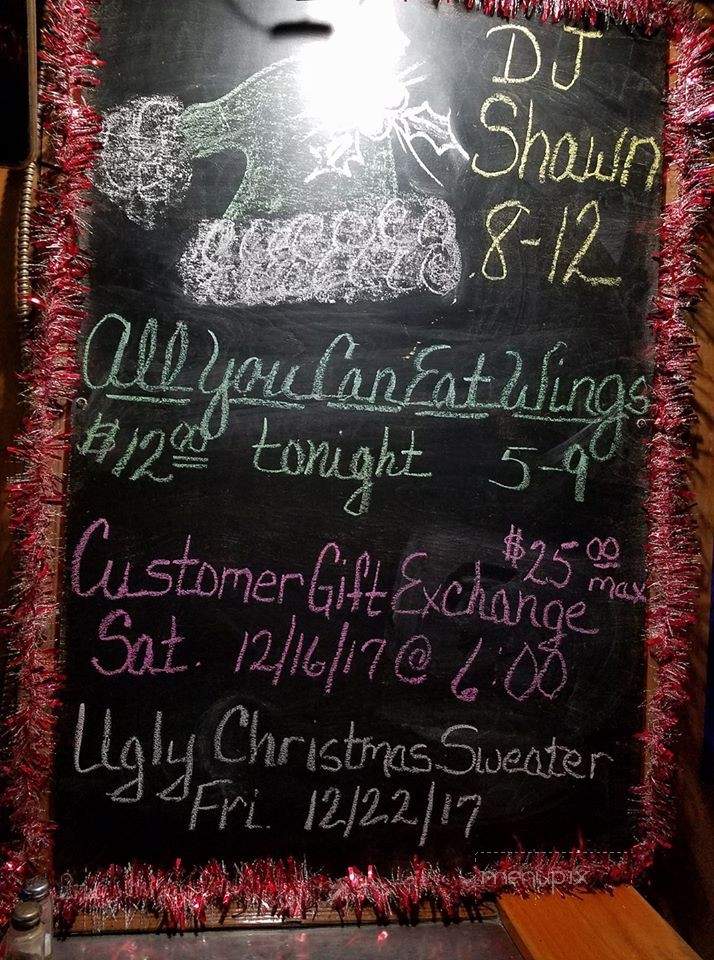 DJ
Shawn
8-12
All You Can Eat Wings
$12.00 tonight 5-9
$25.00
max
Customer Gift Exchange
Sat. 12/16/17 @ 6:00
Ugly Christmas Sweater
Fri. 12/22/17
menupix